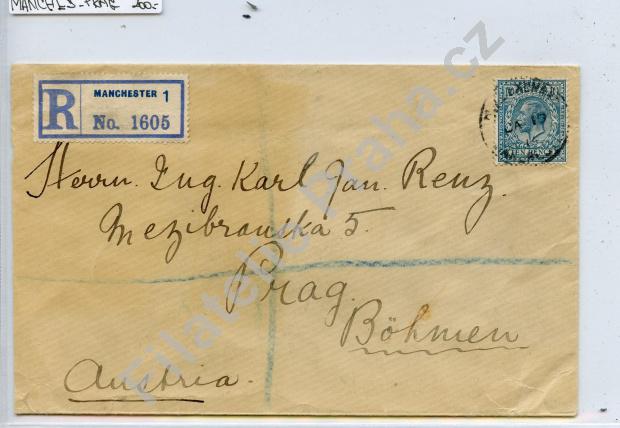 MANCHES - PRAG 200.-
R
MANCHESTER 1
No. 1605
TEN PENCE
Herrn. Ing. Karl Jan. Renz.
Mezibranska 5.
Prag.
Böhmen
Austria.
Filatelie Praha.cz